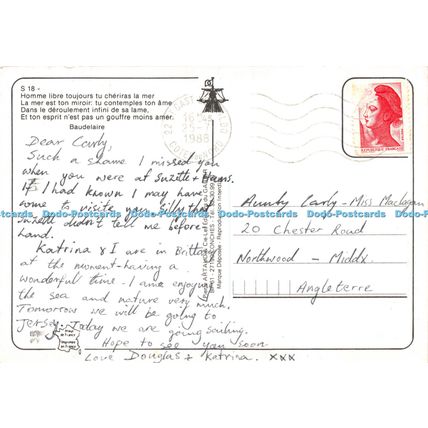 S 18 -
Homme libre toujours tu chériras la mer
La mer est ton miroir: tu contemples ton âme
Dans le déroulement infini de sa lame,
Et ton esprit n'est pas un gouffre moins amer.
Baudelaire
Dear Carly,
Such a shame I missed you
when you were at Suzette + Hans.
If I had known I may have
come to visit you. Silly that
didn't tell me before
hand.
Katrina & I are in Brittany
at the moment - having a
wonderful time. I am enjoying
the sea and nature very much.
Tomorrow we will be going to
Jersey. Today we are going sailing.
Hope to see you soon
Love Douglas + Katrina. xxx
1988
Aunty Carly - Miss Maclagan
20 Chester Road
Northwood - Middx.
Angleterre
Dodo-Postcards Dodo-Postcards Dodo-Postcards Dodo-Postcards